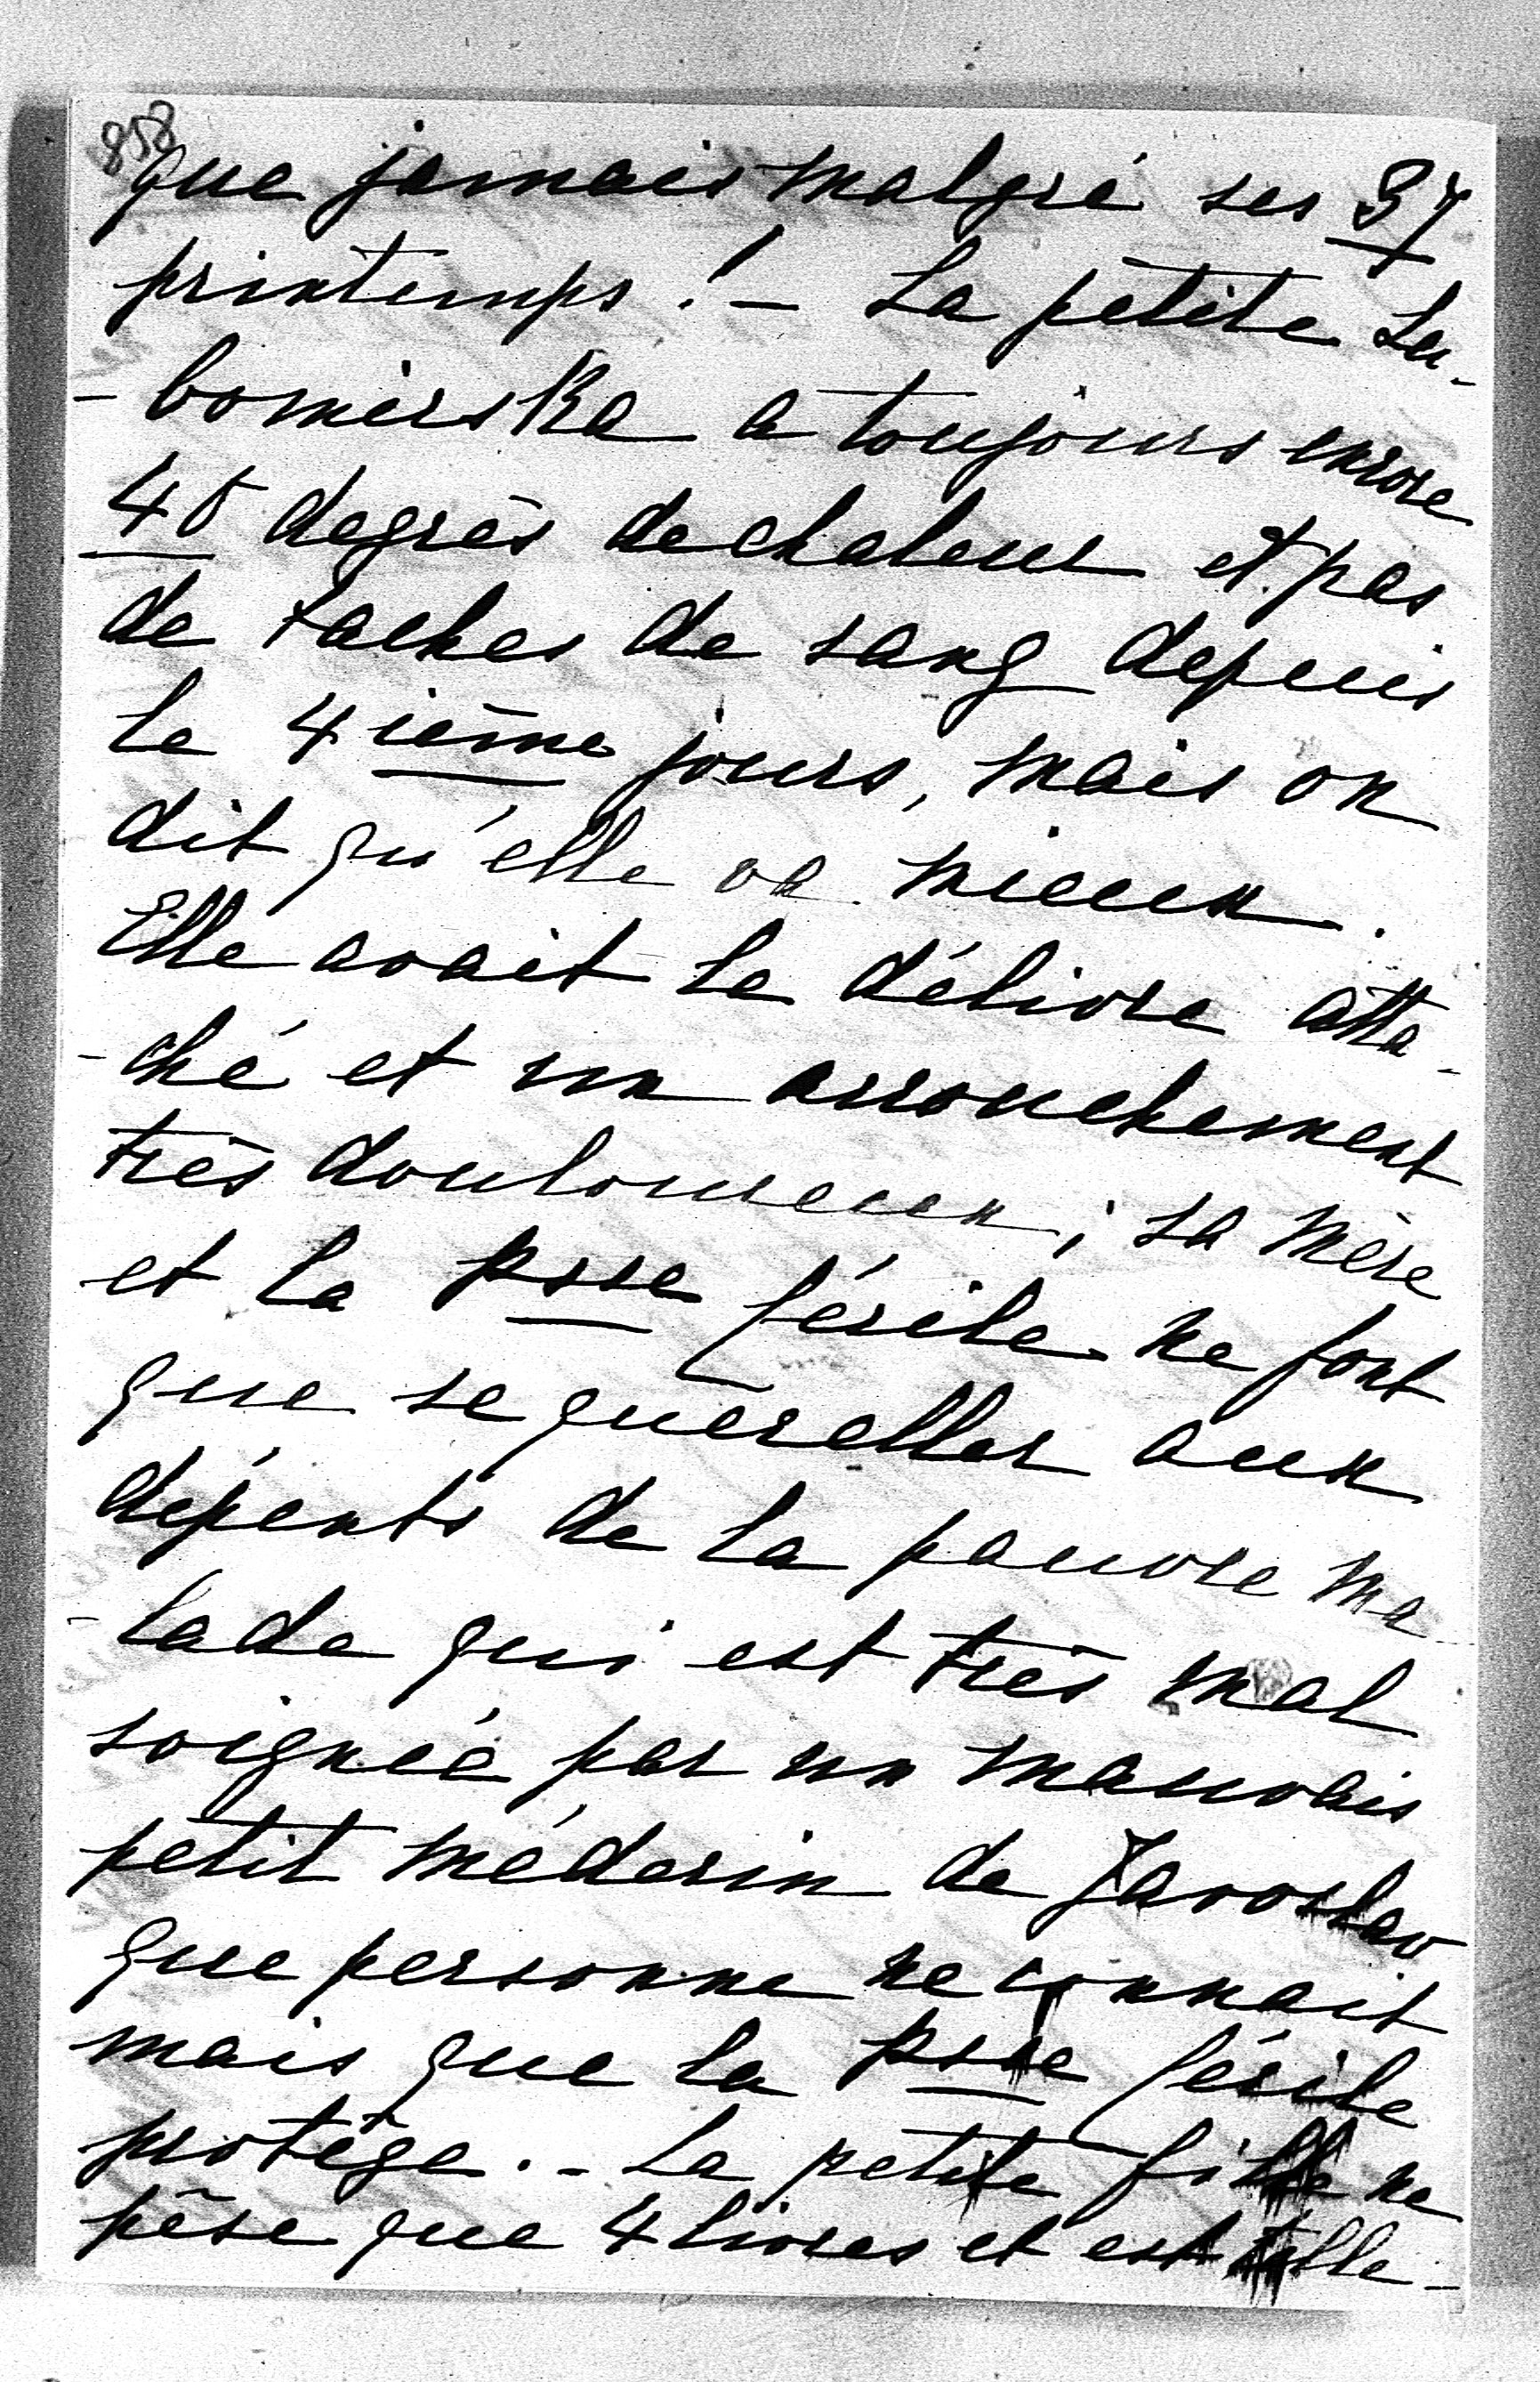 858
que jamais malgré ses 37
printemps ! – La petite Lu-
- bomirska a toujours encore
40 degrès de chaleur et pas
de taches de sang depuis
le 4 ième jours, mais on
dit qu'elle va mieux.
Elle avait le délivre atta-
- ché et un accouchement
très douloureux ; sa mère
et la Psse Cécile ne font
que se quèreller aux
dépents de la pauvre ma-
- lade qui est très mal
soignée par un mauvais
petit médecin de Jaroslav
que personne ne connait
mais que la Psse Cécile
protège. – La petite fille ne
pèse que 4 livres et est telle-